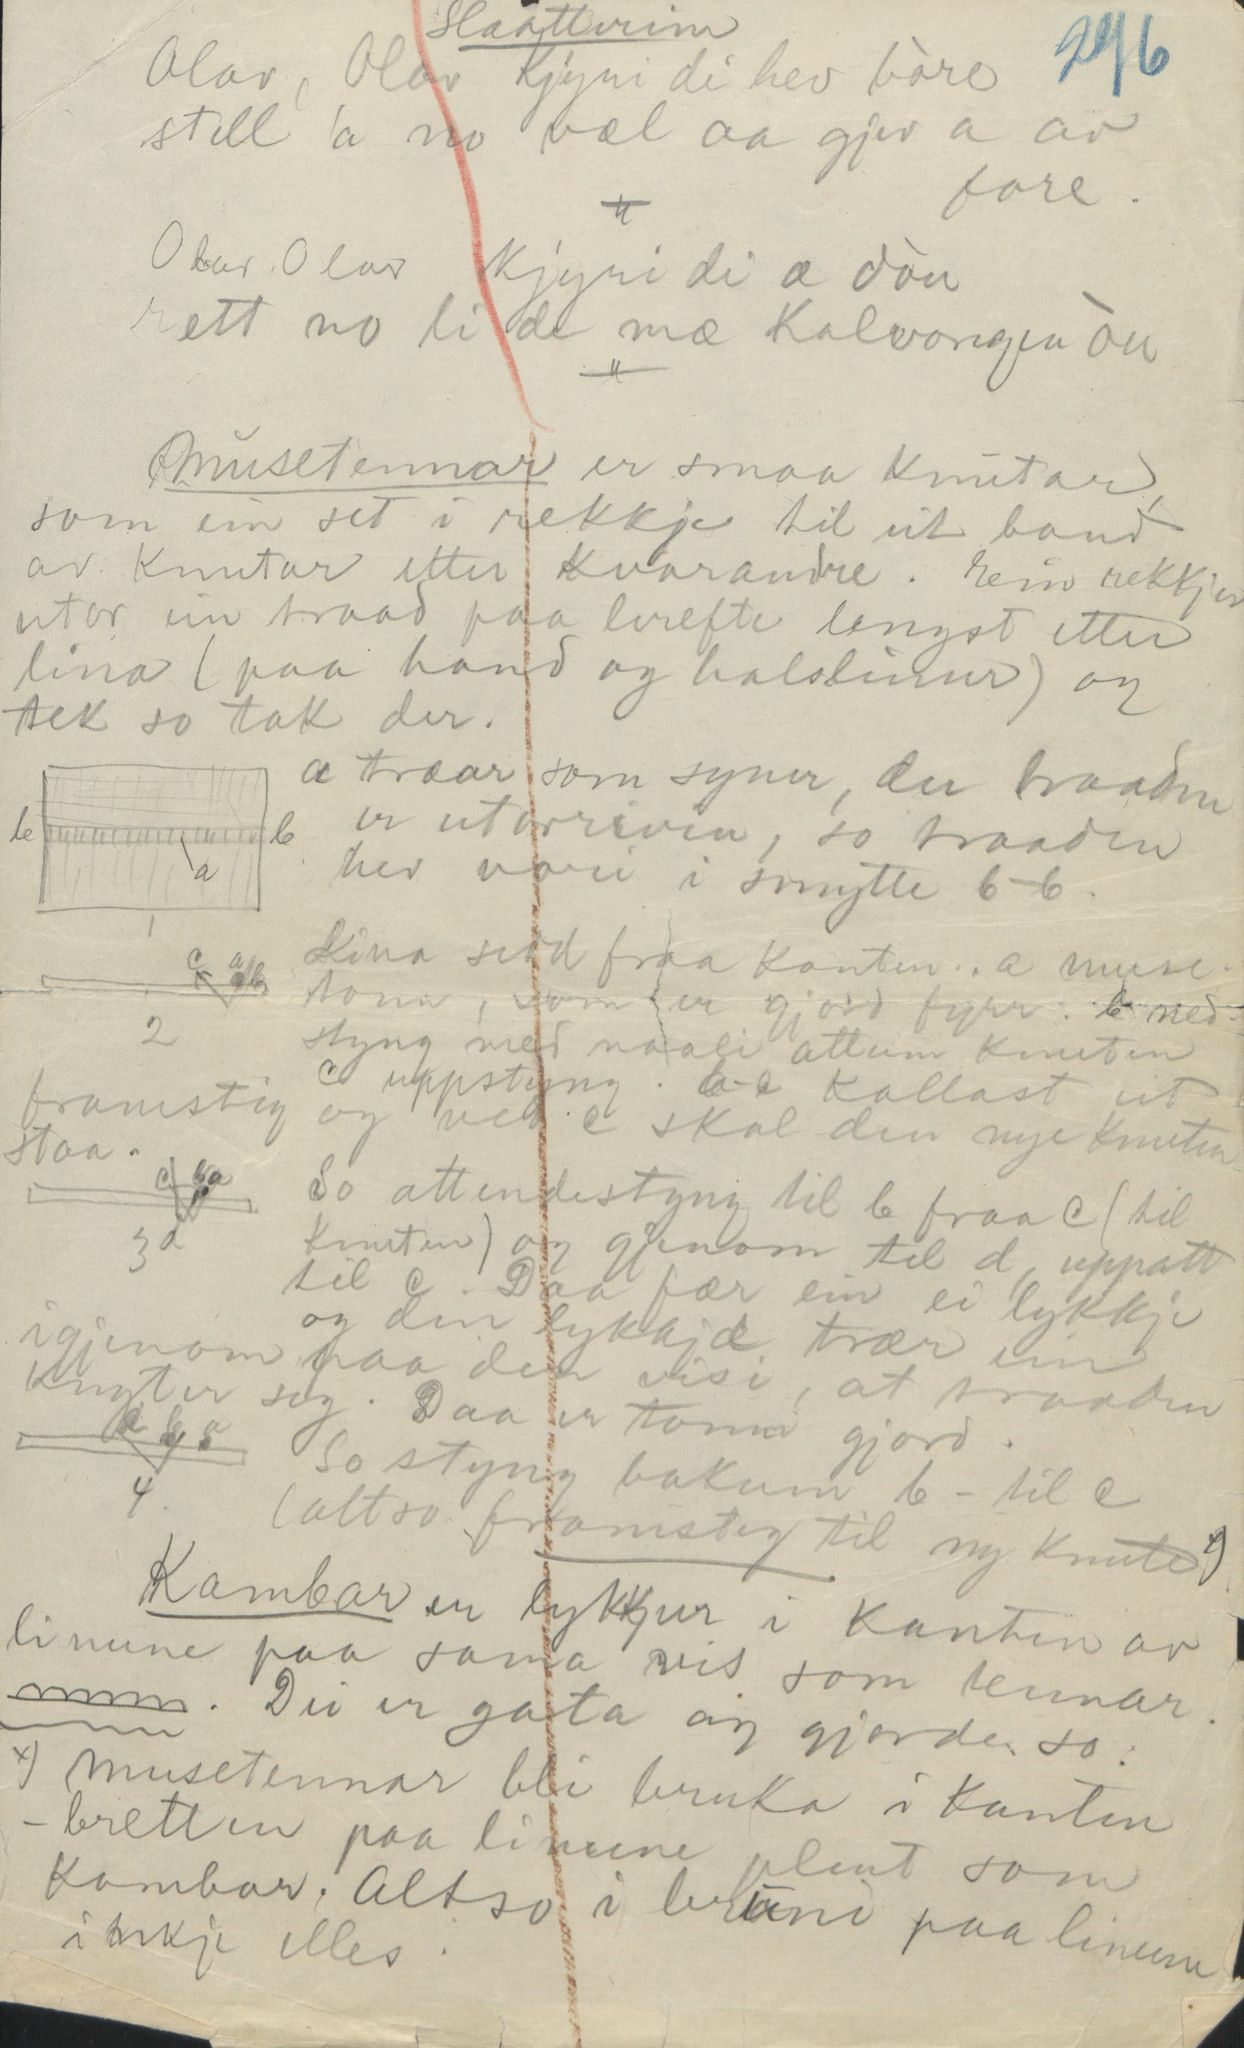 Slaatterim
29/6
Olav, Olav Kjyri di hev bòre
still 'a no væl aa gjev a av
fore.
"
Olav. Olav Kjyri di æ dòu
rett no li de mæ Kalvongen òu
"
Musetennar er smaa knutar,
som ein set i rekkje til eit band
av knutar etter kvarandre. Ein rekkjer
utor ein traad paa lerefte langst etter
lina (paa hand og halslinur) og
tek so tak der.
a træar som syner, der traaden
er utorriven, so traaden
hev vori i smytte b-b.
b b
a
1
Lina sedd fraa kanten. a muse-
tonn, som er gjord fyrr. b ned-
styng med naali attum knuten
c uppstyng. b-c kallast eit
framstig og ved c skal den nye knuten
staa.
c a b
2
So attendestyng til b fraa c (til
knuten) og gjenom til d, uppatt
til c. Daa fær ein ei lykkje
og den lykkja trær ein
igjenom paa den visi, at traaden
knyter seg. Daa er tonni gjord.
c b a
3 d
So styng bakum b - til c
(altso framstig til ny knute x)
4.
Kambar er lykkjur i kanten av
linune paa sama vis som tennar.
Dei er gata og gjorde so:
x) Musetennar bli bruka i kanten
- bretten paa linune plent som
Kambar. Altso i bræni paa linune
inkje elles.